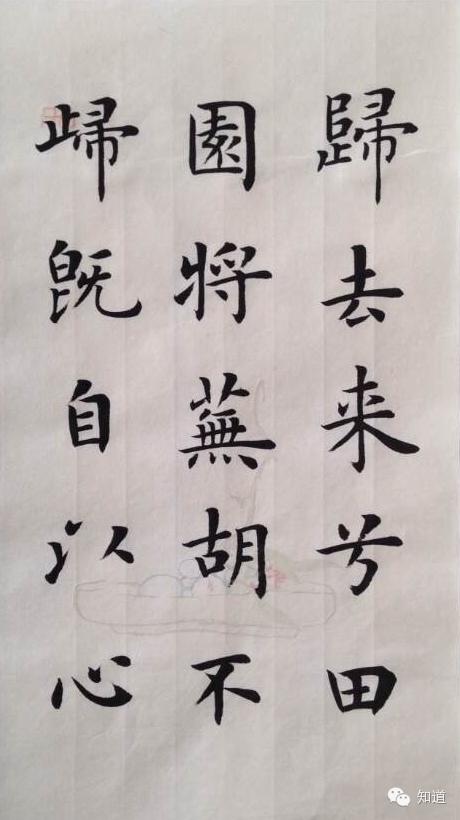 歸去来兮田
園將蕪胡不
歸既自以心
知道